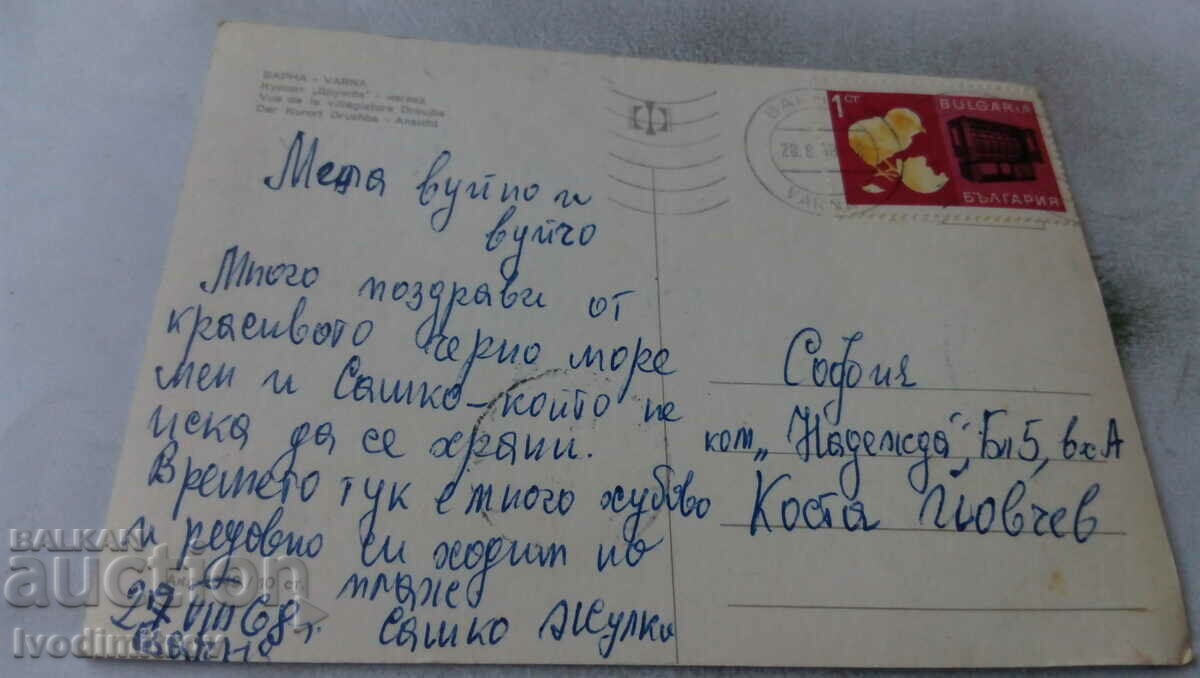 ВАРНА - VARNA
Курорт „Дружба" - изглед
Vue de la villégiature Droujba
Der Kurort Drushba - Ansicht
VARNA
28.8.
1 СТ
BULGARIA
БЪЛГАРИЯ
Мета вуйно и
вуйчо
Много поздрави от
красивото черно море
мен и Сашко-който не
иска да се храни.
Времето тук е много хубаво
и редовно си ходим на
плаж
27 VIII 68 г. Сашко Жулка
Варна
София
ком „Надежда", Бл 5, вх А
Коста Йовчев
10 ст.
BALKAN
auction
Ivodimitrov